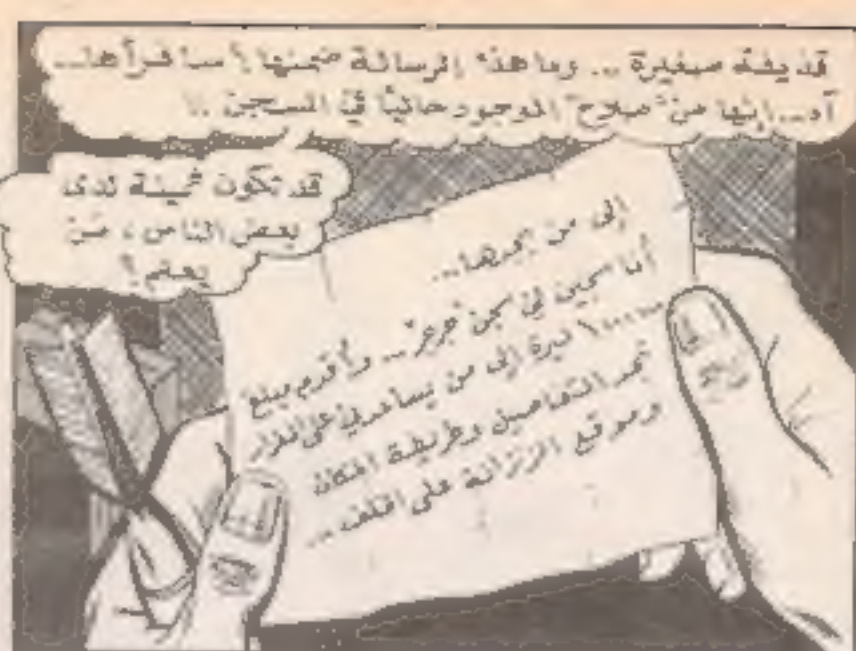 قذيفة صغيرة ... وما هذه الرسالة ضمنها؟ سأقرأها...
آه... إنها من "صلاح" الموجود حالياً في السجن !!
قد تكون ثمينة لدى
بعض الناس ، من
يعلم ؟
إلى من يجدها...
أنا سجين في سجن "عرعر" ... وأقدم مبلغ
ليرة إلى من يساعدني على الفرار..
تجد التفاصيل وخريطة المكان
وموقع الزنزانة على الخلف ...